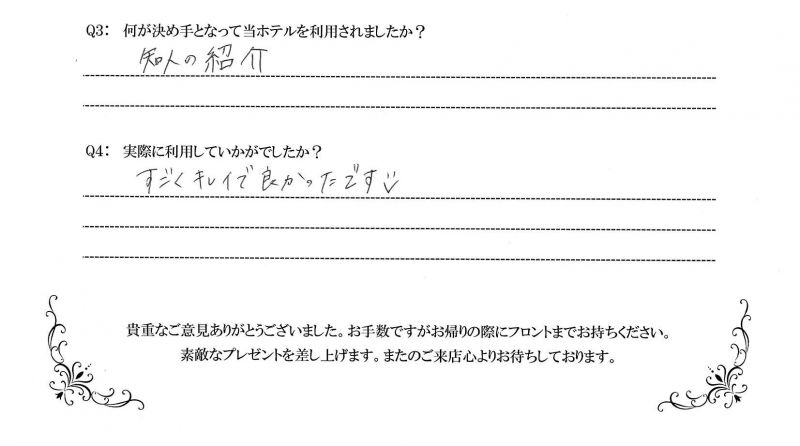 Q3: 何が決め手となって当ホテルを利用されましたか?
知人の紹介
Q4: 実際に利用していかがでしたか?
すごくキレイで良かったです
貴重なご意見ありがとうございました。お手数ですがお帰りの際にフロントまでお持ちください。
素敵なプレゼントを差し上げます。またのご来店心よりお待ちしております。